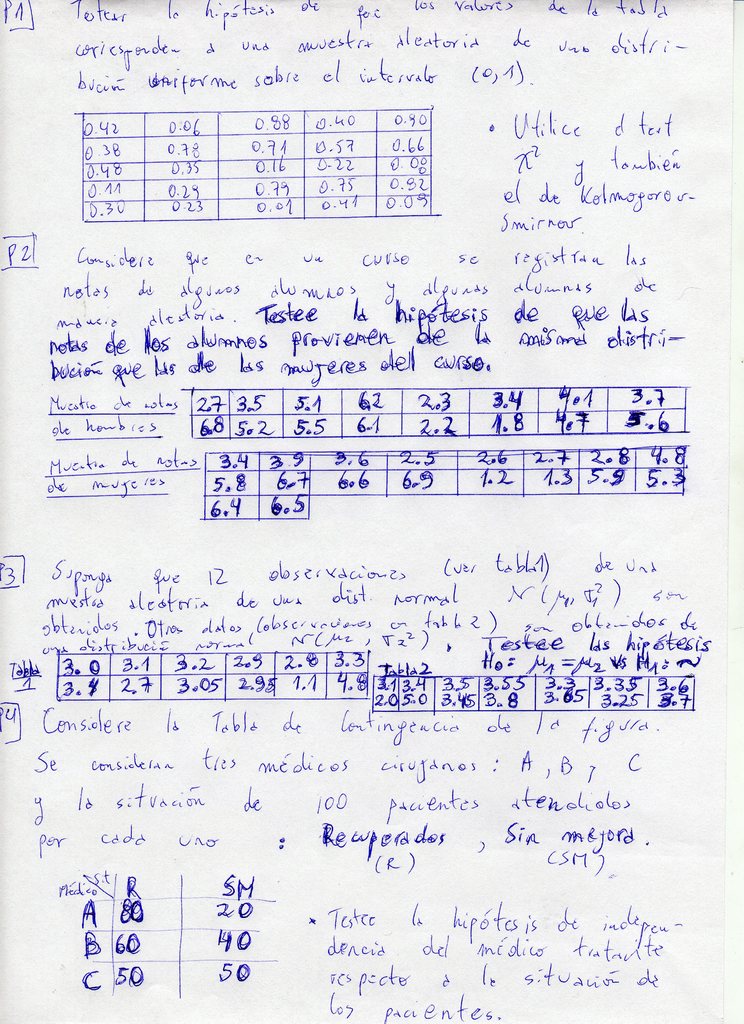 P1] Testear la hipótesis de que los valores de la tabla
corresponden a una muestra aleatoria de una distri-
bución uniforme sobre el intervalo (0,1).
0.42 0.06 0.88 0.40 0.90
0.38 0.78 0.71 0.57 0.66
0.48 0.35 0.16 0.22 0.08
0.11 0.29 0.79 0.75 0.82
0.30 0.23 0.01 0.41 0.09
• Utilice el test
χ² y también
el de Kolmogorov-
Smirnov.
P2] Considere que en un curso se registran las
notas de algunos alumnos y algunas alumnas de
manera aleatoria. Testee la hipótesis de que las
notas de los alumnos provienen de la misma distri-
bución que las de las mujeres del curso.
Muestra de notas de hombres
2.7 3.5 5.1 6.2 2.3 3.4 4.1 3.7
6.8 5.2 5.5 6.1 2.2 1.8 4.7 5.6
Muestra de notas de mujeres
3.4 3.9 3.6 2.5 2.6 2.7 2.8 4.8
5.8 6.7 6.6 6.9 1.2 1.3 5.9 5.3
6.4 6.5
P3] Suponga que 12 observaciones (ver tabla 1) de una
muestra aleatoria de una dist. normal N(μ1, σ1²) son
obtenidos. Otros datos (observaciones en tabla 2) son obtenidos de
una distribución normal N(μ2, σ2²). Testee las hipótesis
H0: μ1 = μ2 vs H1: ~
Tabla 1
3.0 3.1 3.2 2.9 2.8 3.3
3.4 2.7 3.05 2.95 1.1 4.8
Tabla 2
3.1 3.4 3.5 3.55 3.3 3.35 3.6
2.0 5.0 3.45 3.8 3.65 3.25 3.7
P4] Considere la Tabla de Contingencia de la figura.
Se consideran tres médicos cirujanos: A, B y C
y la situación de 100 pacientes atendidos
por cada uno : Recuperados, Sin mejora.
(R) (SM)
Médico s.t R SM
A 80 20
B 60 40
C 50 50
* Testee la hipótesis de indepen-
dencia del médico tratante
respecto a la situación de
los pacientes.